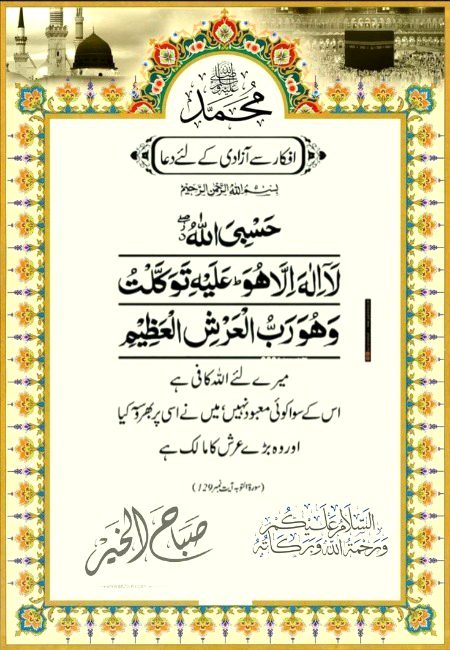 محمد ﷺ
افکار سے آزادی کے لئے دعا
بِسْمِ اللهِ الرَّحْمٰنِ الرَّحِيْمِ
حَسْبِیَ اللهُ
لَآ اِلٰهَ اِلَّا هُوَ ؕ عَلَيْهِ تَوَكَّلْتُ
وَهُوَ رَبُّ الْعَرْشِ الْعَظِيْمِ
میرے لئے اللہ کافی ہے
اس کے سوا کوئی معبود نہیں، میں نے اسی پر بھروسہ کیا
اور وہ بڑے عرش کا مالک ہے
(سورۃ التوبہ آیت نمبر 129)
اَلسَّلَامُ عَلَيْكُمْ
وَرَحْمَةُ اللهِ وَبَرَكَاتُهُ
صَبَاحَ الْخَيْر